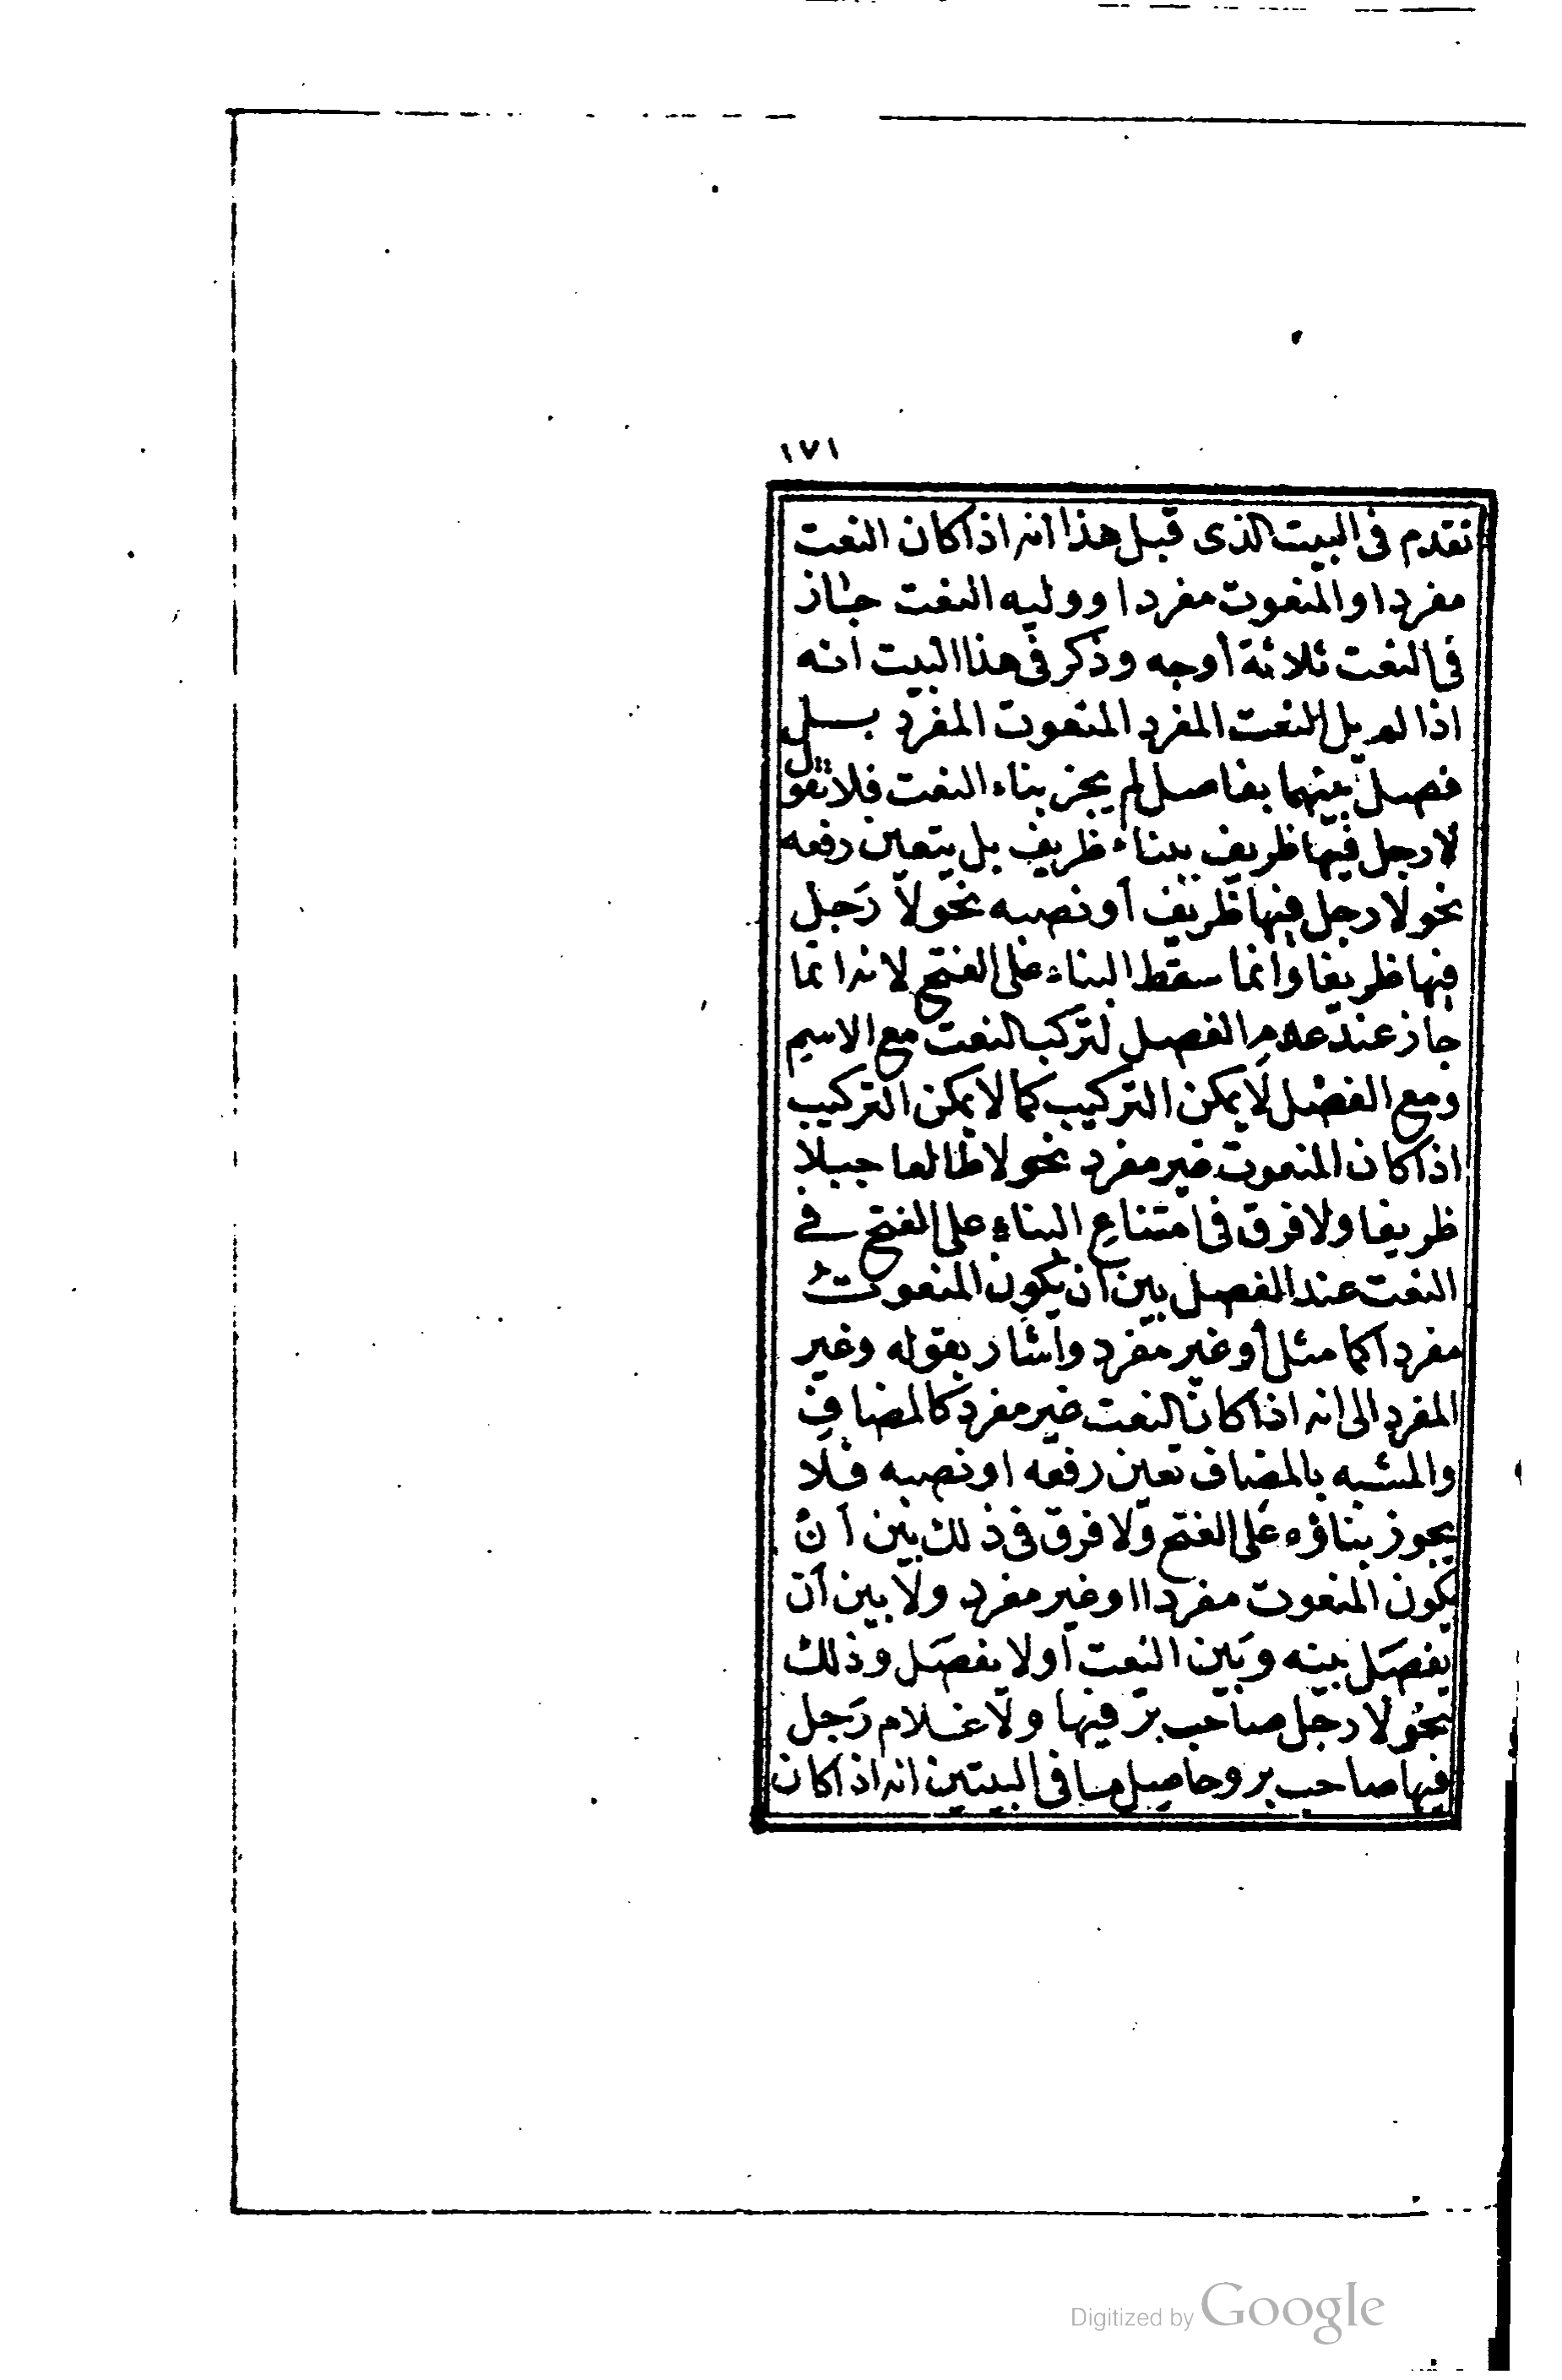 ١٧١
تقدم فى البيت الذى قبل هذا انه اذا كان النعت
مفردا والمنعوت مفردا ووليه النعت جاز
فى النعت ثلاثة أوجه وذكر فى هذا البيت انه
اذا لم يل النعت المفرد المنعوت المفرد بــل
فصل بينهما بفاصل لم يجز بناء النعت فلا تقول
لا رجل فيها ظريف ببناء ظريف بل يتعين رفعه
نحو لا رجل فيها ظريف أو نصبه نحو لا رَجل
فيها ظريفا وانما سقط البناء على الفتح لانه انما
جاز عند عدم الفصل لتركب النعت مع الاسم
ومع الفصل لا يمكن التركيب كما لا يمكن التركيب
اذا كان المنعوت غير مفرد نحو لا طالعا جبلا
ظريفا ولا فرق فى امتناع البناء على الفتح فى
النعت عند الفصل بين أن يكون المنعوت
مفردا كما مثل أو غير مفرد واشار بقوله وغير
المفرد الى انه اذا كان النعت غير مفرد كالمضاف
والمشبه بالمضاف تعين رفعه او نصبه فلا
يجوز بناؤه على الفتح ولا فرق فى ذلك بين أن
يكون المنعوت مفردا او غير مفرد ولا بين أن
يفصَل بينه وبَين النعت أولا يفصَل وذلك
نحو لا رجل صاحب بر فيها ولا غلام رَجل
فيها صاحب بر وحاصل ما فى البيتين انه اذا كان
Digitized by Google